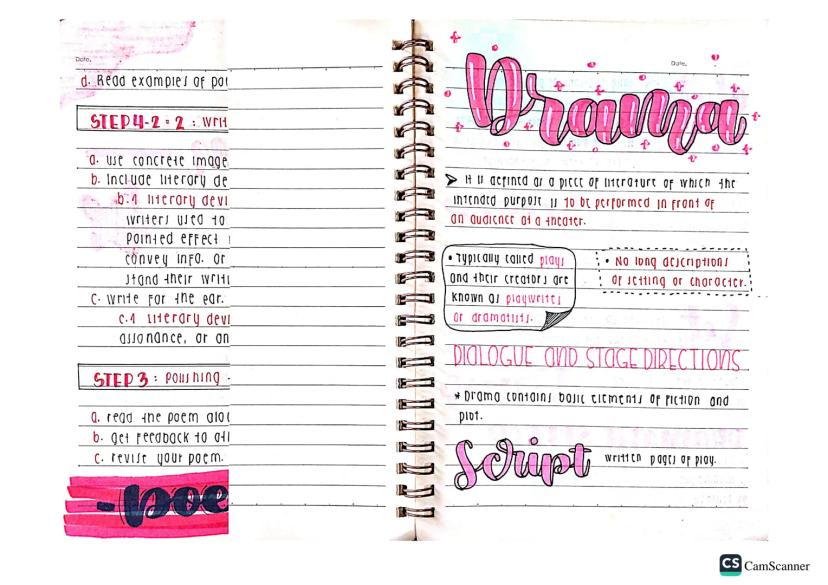 Date.
d. Read examples of poe
STEP 4-2 = 2 : writ
a. use concrete image
b. Include literary de
b.1 literary devi
writers used to
pointed effect
convey info. or
stand their writi
c. write for the ear.
c.1 literary devi
assonance, or on
STEP 3 : polishing
a. read the poem alo
b. get feedback to
c. revise your poem.
- poe
Date.
Drama
➤ It is defined as a piece of literature of which the
intended purpose is to be performed in front of
an audience at a theater.
• Typically called plays
and their creators are
known as playwrites
or dramatists.
• No long descriptions
of setting or character.
DIALOGUE AND STAGE DIRECTIONS
* Drama contains basic elements of fiction and
plot.
Script written pages of play.
CS CamScanner